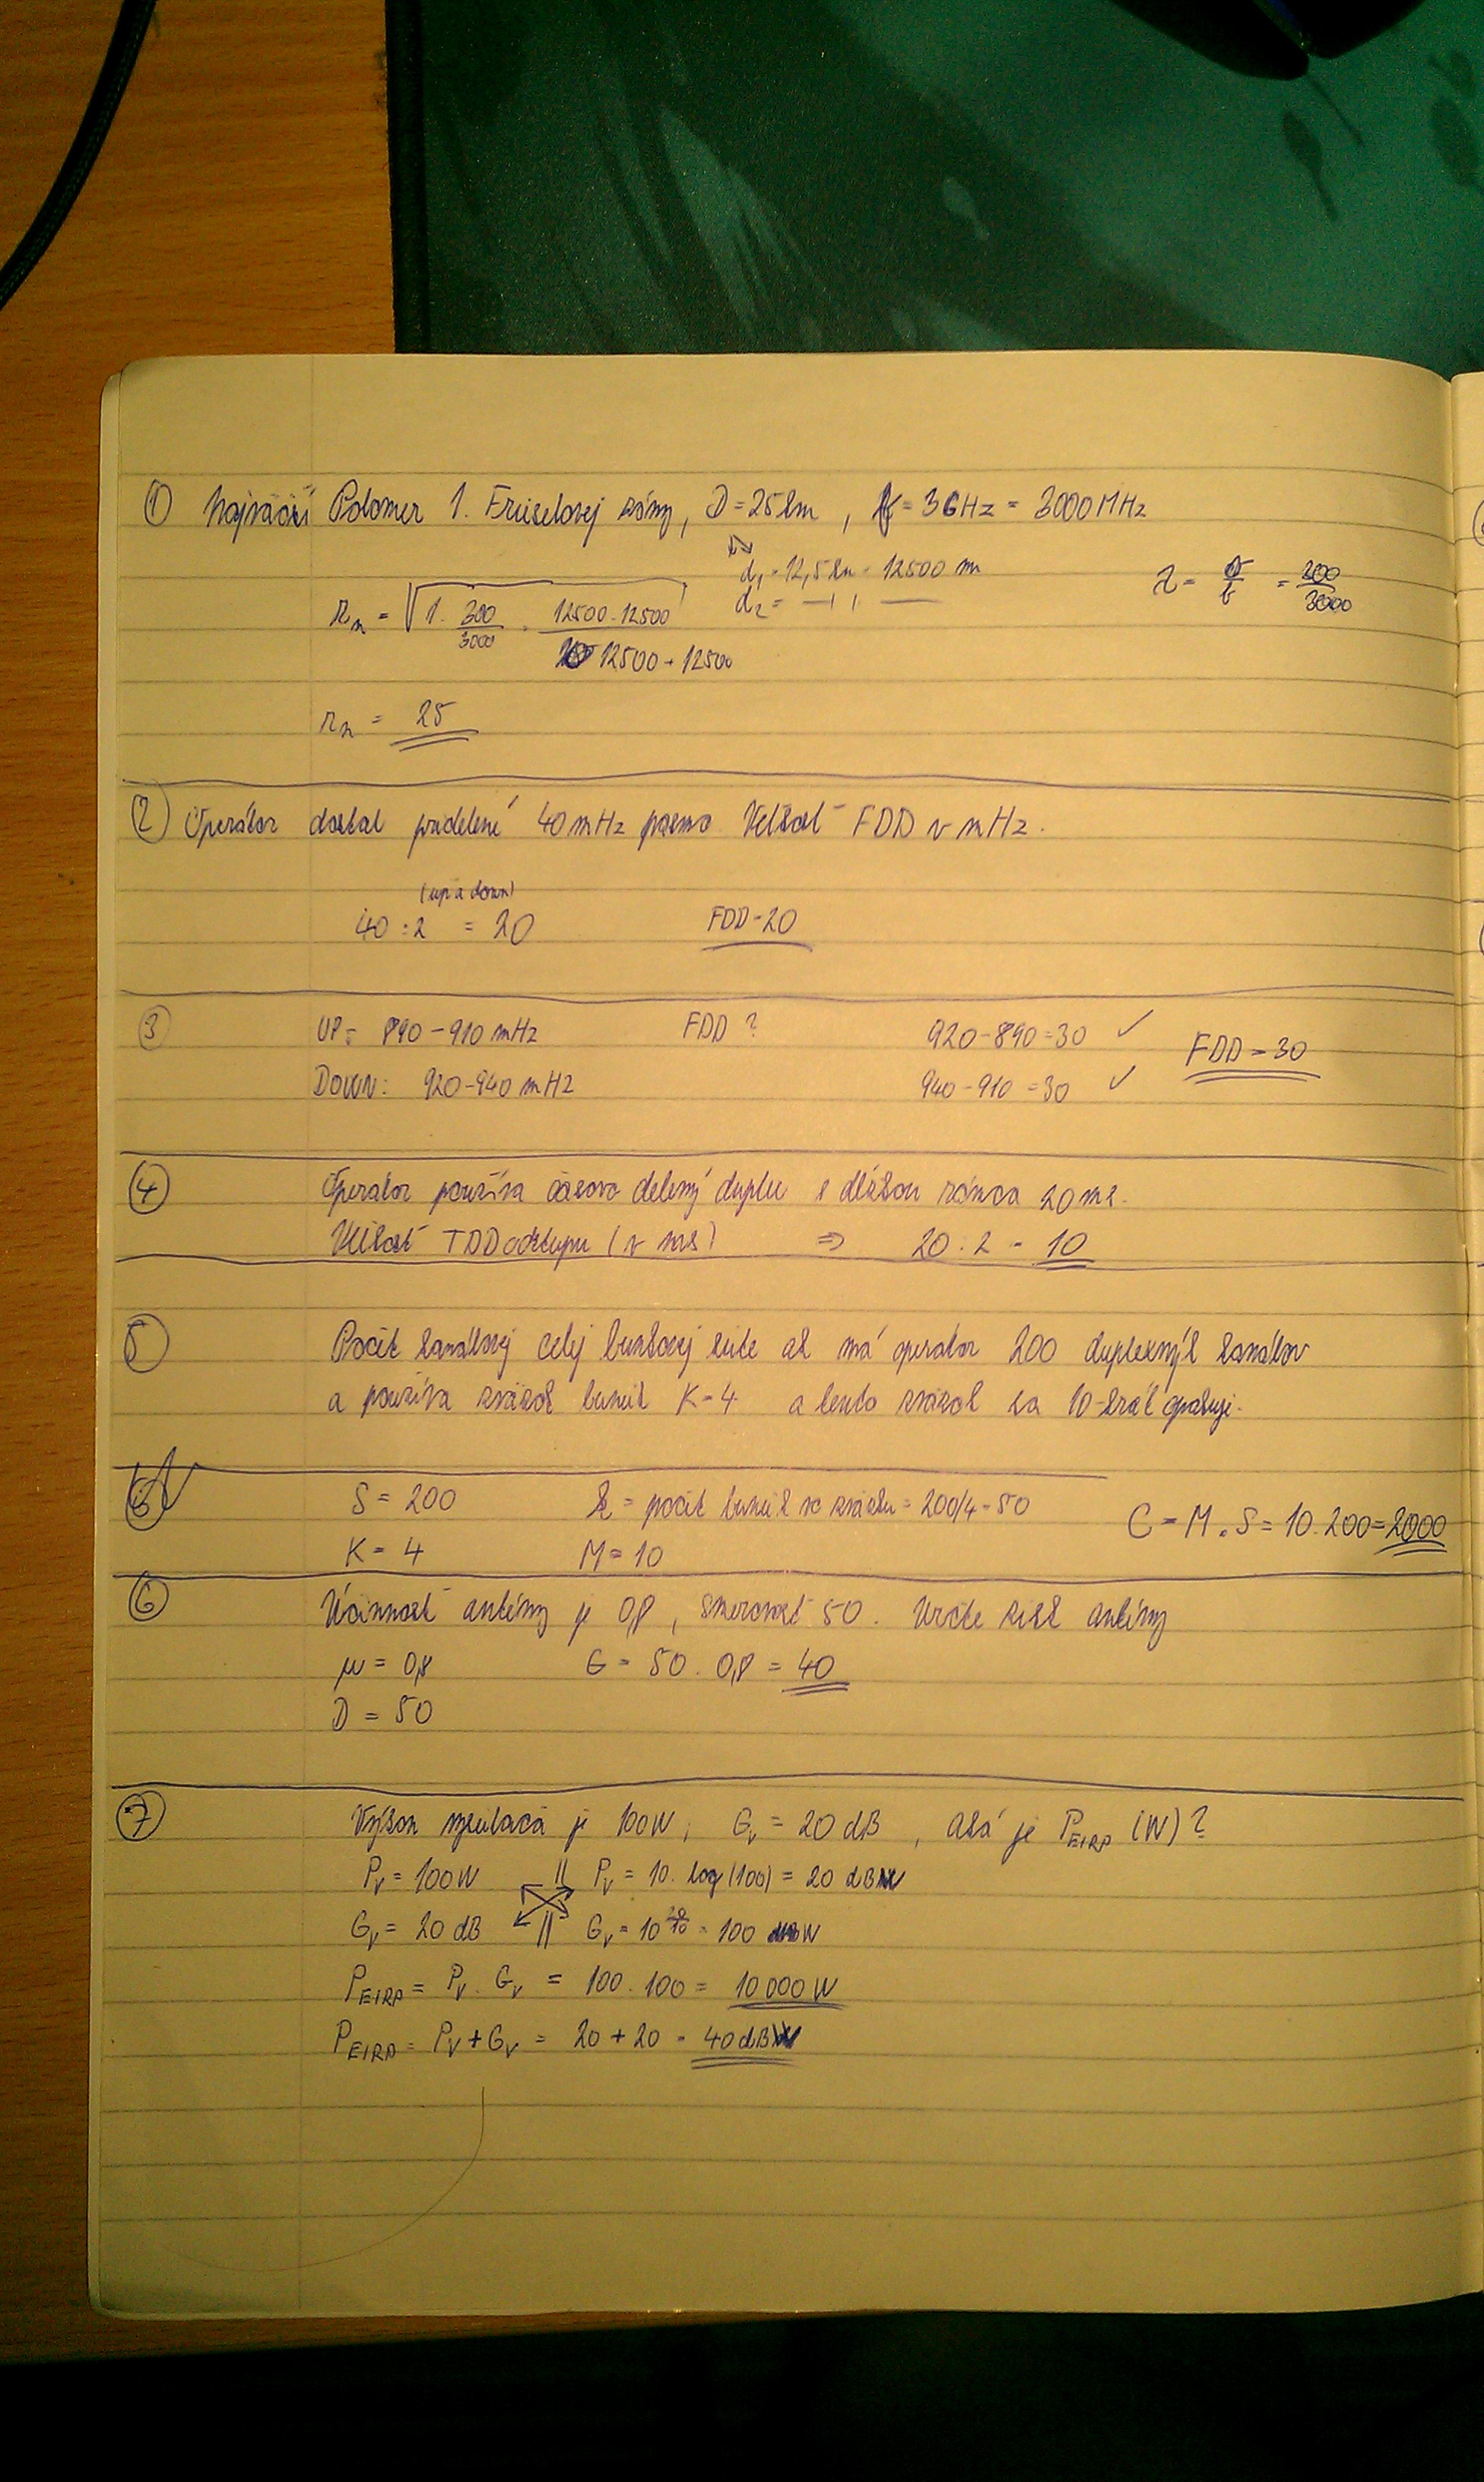 ① Najväčší Polomer 1. Fresnelovej zóny, D=25km, f=3GHz = 3000MHz
d₁ = 12,5km = 12500 m
d₂ = —ıı—
λ = v/f = 300/3000
rₙ = √(1 · 300/3000 · (12500 · 12500)/(12500 + 12500))
rₙ = 25
② Operátor dostal pridelené 40 mHz pásmo Veľkosť FDD v mHz.
(up a down)
40 : 2 = 20 FDD = 20
③ UP: 890 – 910 mHz FDD? 920 – 890 = 30 ✓ FDD = 30
DOWN: 920 – 940 mHz 940 – 910 = 30 ✓
④ Operátor používa časovo delený duplex s dĺžkou rámca 20ms.
Veľkosť TDD odstupu (v ms) ⇒ 20 : 2 = 10
⑤ Počet kanálov celej bunkovej siete ak má operátor 200 duplexných kanálov
a používa zväzok buniek K=4 a tento zväzok sa 10-krát opakuje.
S = 200 k = počet buniek vo zväzku = 200/4 = 50 C = M · S = 10 · 200 = 2000
K = 4 M = 10
⑥ Účinnosť antény je 0,8, smerovosť 50. Určte zisk antény
μ = 0,8 G = 50 · 0,8 = 40
D = 50
⑦ Výkon vysielača je 100W, Gᵥ = 20 dB, aká je P_EIRP (W)?
Pᵥ = 100W || Pᵥ = 10 · log(100) = 20 dBW
Gᵥ = 20 dB || Gᵥ = 10^(20/10) = 100 W
P_EIRP = Pᵥ · Gᵥ = 100 · 100 = 10 000 W
P_EIRP = Pᵥ + Gᵥ = 20 + 20 = 40 dBW